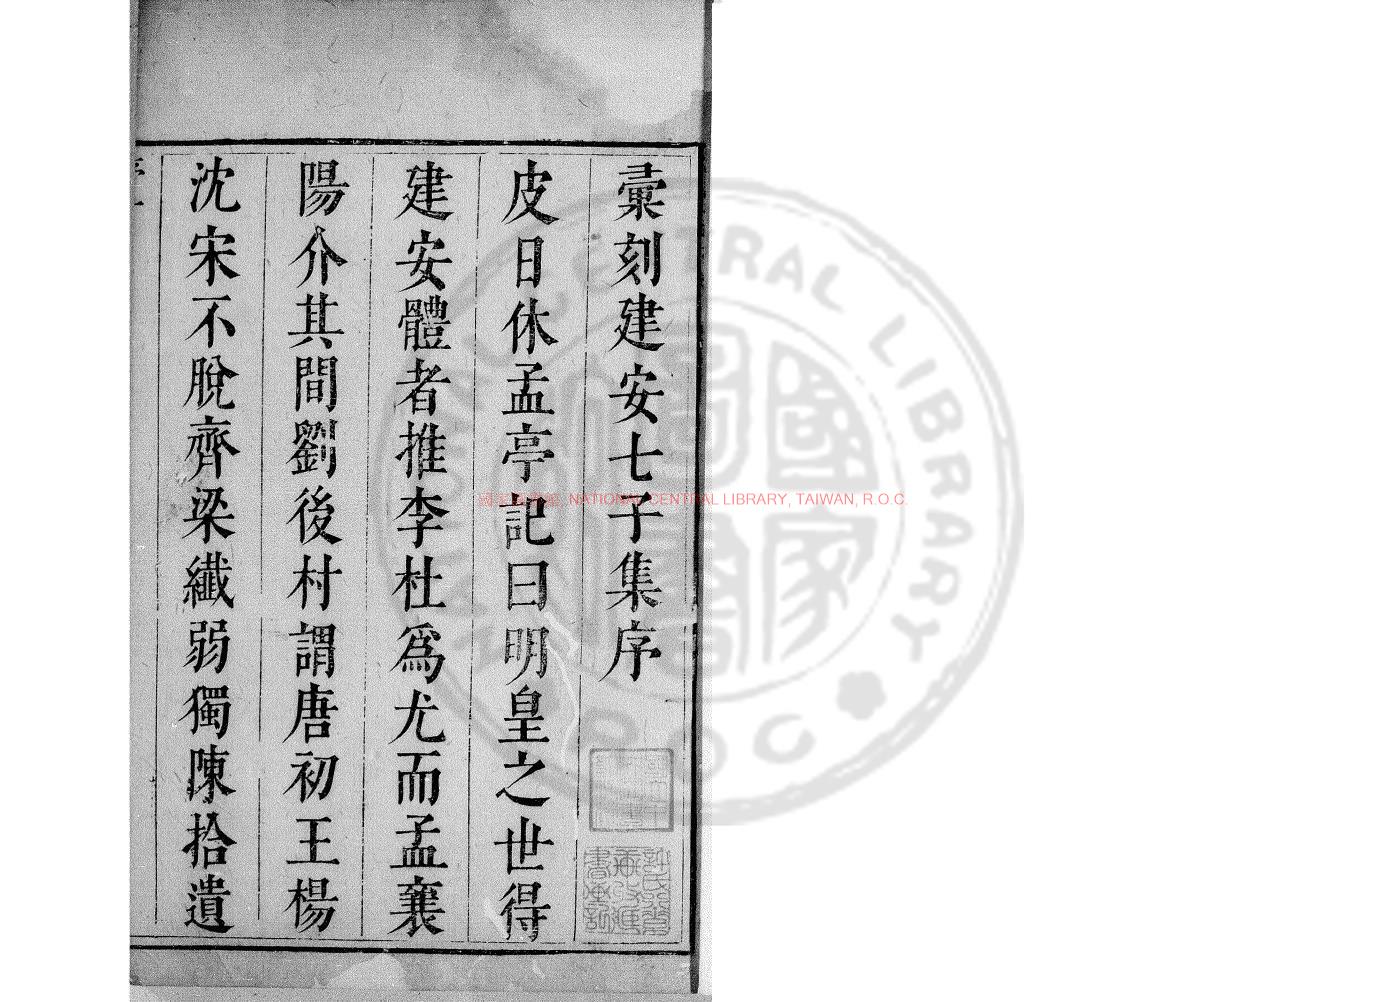 彚刻建安七子集序
皮日休孟亭記曰明皇之世得
建安體者推李杜爲尤而孟襄
陽介其間劉後村謂唐初王楊
沈宋不脫齊梁纎弱獨陳拾遺
國家圖書館, NATIONAL CENTRAL LIBRARY, TAIWAN, R.O.C.
NATIONAL CENTRAL LIBRARY
R O C
國家圖書